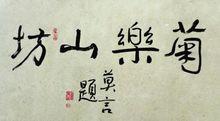 菊樂山坊
莫言
題